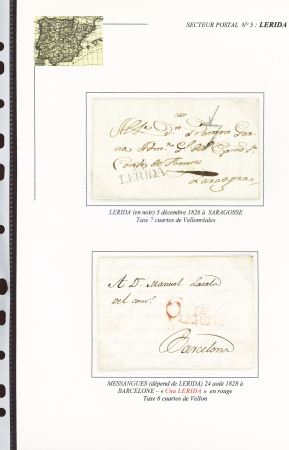 SECTEUR POSTAL N° 5 : LERIDA
Dn Ramon
Conde de Fuentes
LERIDA
Zaragoza
LERIDA (en noir) 5 décembre 1826 à SARAGOSSE
Taxe 7 cuartos de Vellonréales
A Dn Manuel Lasala
del com°
Barcelona
MESSANGUES (dépend de LERIDA) 24 août 1828 à
BARCELONE – « Cna LERIDA » en rouge
Taxe 6 cuartos de Vellon